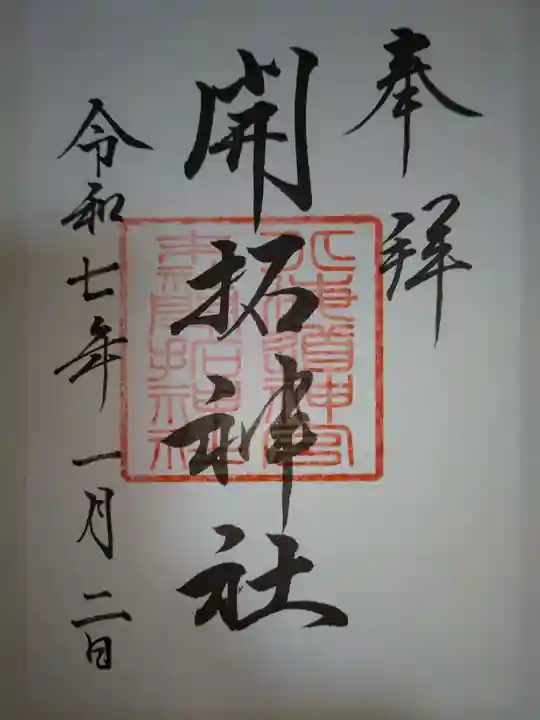 奉拝
開拓神社
令和七年一月二日
北海道神宮
末社開拓神社